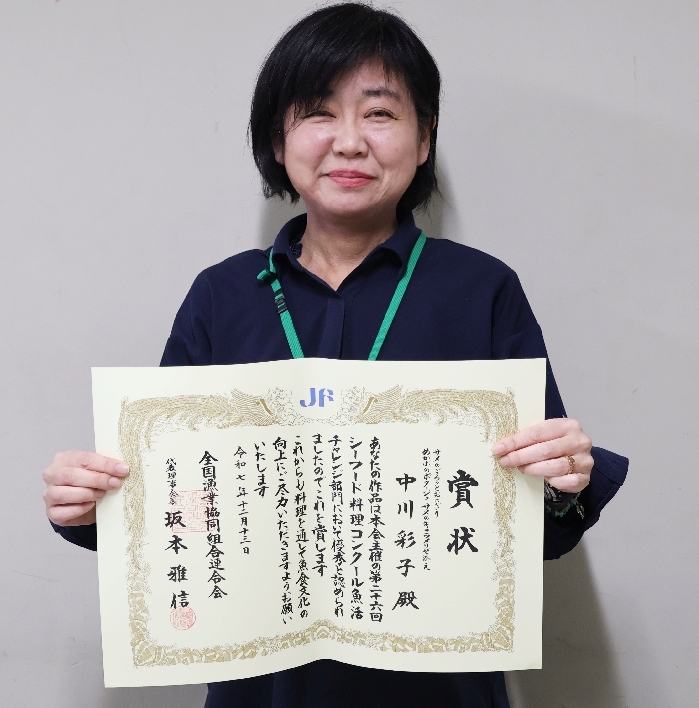 JF
賞状
サメの
めかぶのポタージュ サメのキャラメリゼ添え
中川彩子殿
あなたの作品は本会主催の第二十六回
シーフード料理コンクール魚活
チャレンジ部門において優秀と認められ
ましたのでこれを賞します
これからも料理を通して魚食文化の
向上にご尽力いただきますようお願い
いたします
令和七年十二月十三日
全国漁業協同組合連合会
代表理事会長 坂本雅信